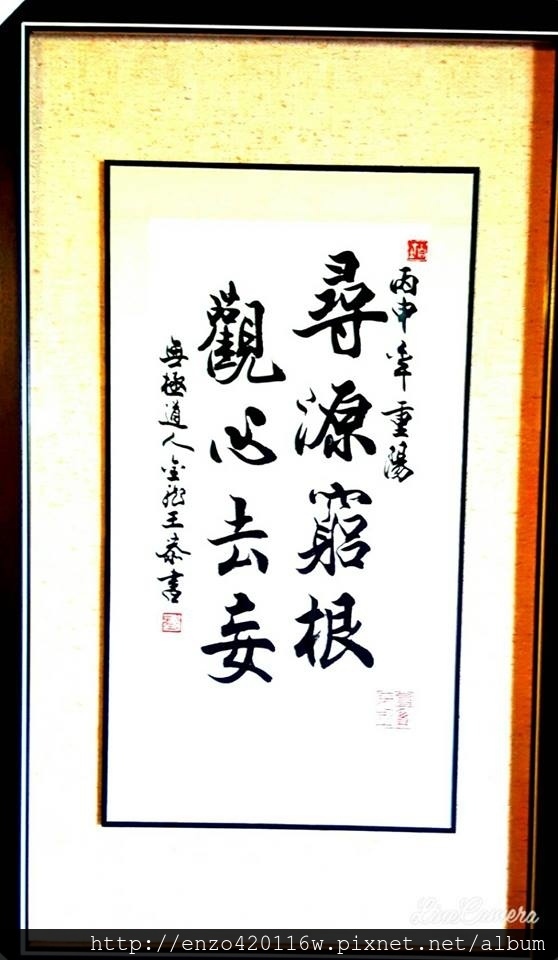 丙申年重陽
尋源窮根
觀心去妄
無極道人金彩王泰書
LineCamera
http://enzo420116w.pixnet.net/album